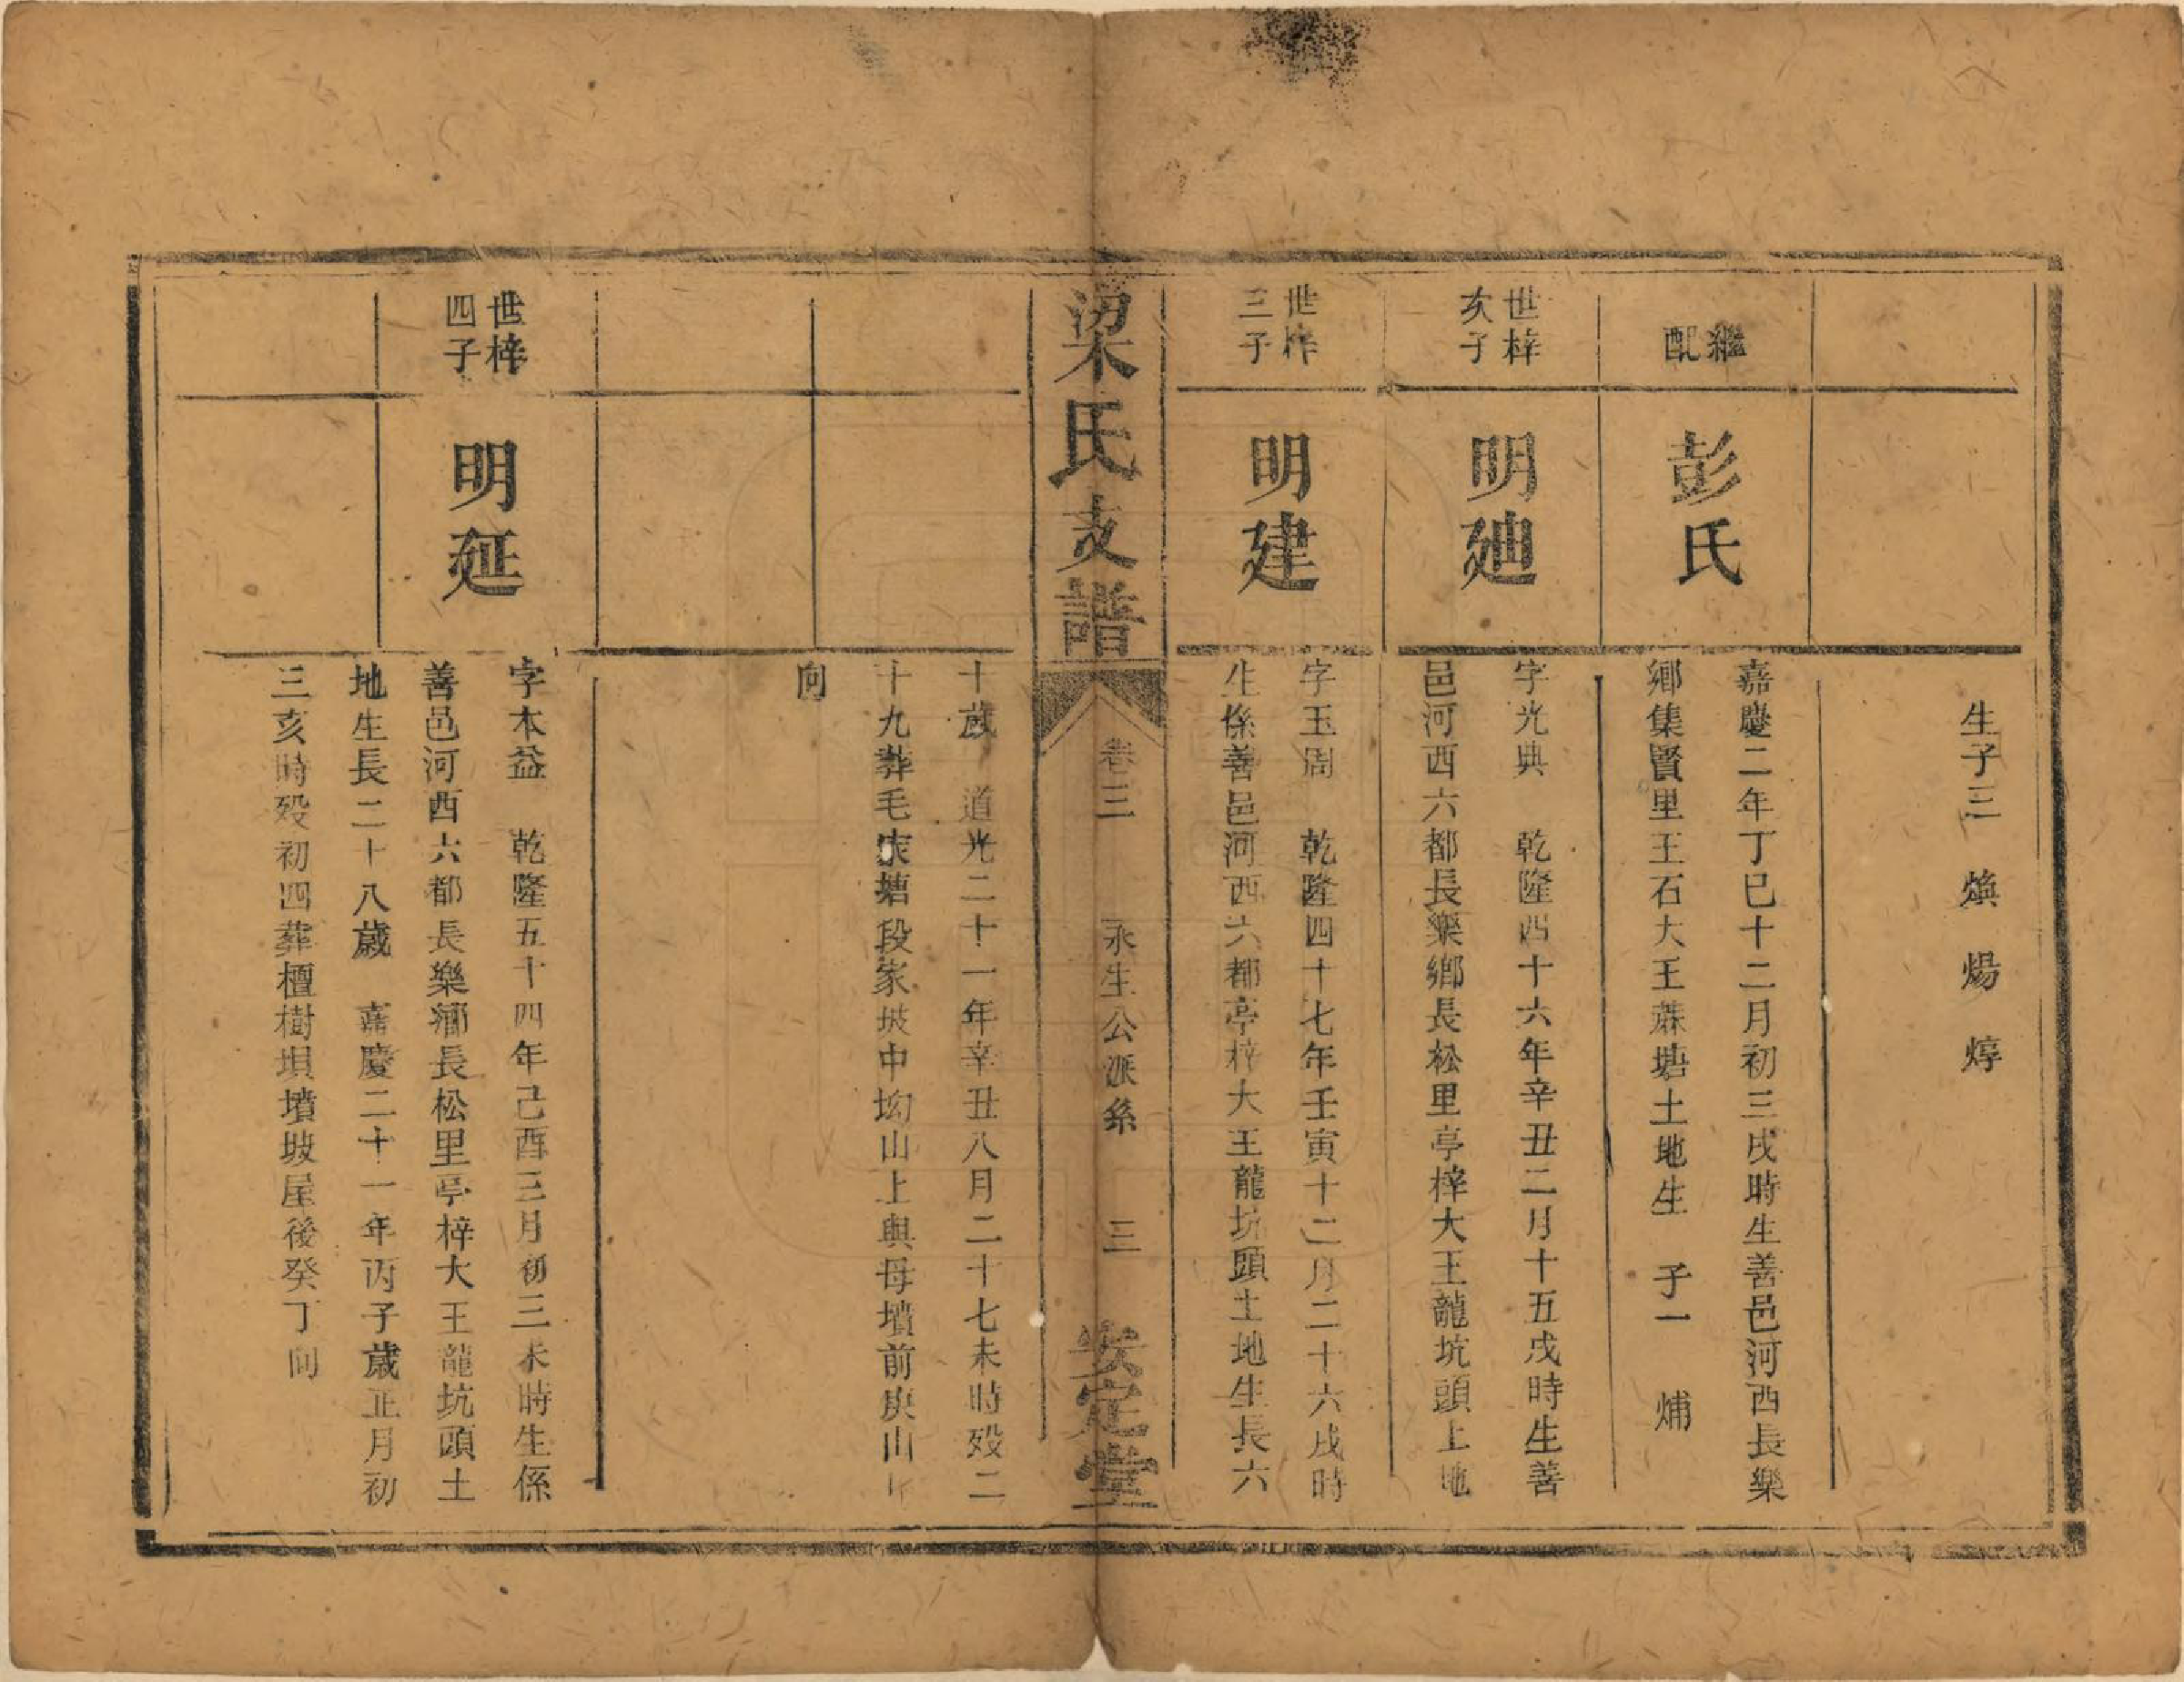 生子三　煥　煬　焞
繼配
彭氏
嘉慶二年丁巳十二月初三戌時生善邑河西長樂
鄉集賢里王石大王蔴塘土地生　子一　烳
世梓次子
明廸
字光典　乾隆四十六年辛丑二月十五戌時生善
邑河西六都長樂鄉長松里亭梓大王龍坑頭土地
世梓三子
明建
字玉周　乾隆四十七年壬寅十二月二十六戌時
生係善邑河西六都亭梓大王龍坑頭土地生長六
梁氏支譜
卷三　永生公派系　三
安定堂
十歲　道光二十一年辛丑八月二十七未時歿二
十九葬毛家塘段家坡中坳山上與母墳前庚山
向
世梓四子
明延
字木益　乾隆五十四年己酉三月初三未時生係
善邑河西六都長樂鄉長松里亭梓大王龍坑頭土
地生長二十八歲　嘉慶二十一年丙子歲正月初
三亥時歿初四葬檀樹垻墳坡屋後癸丁向